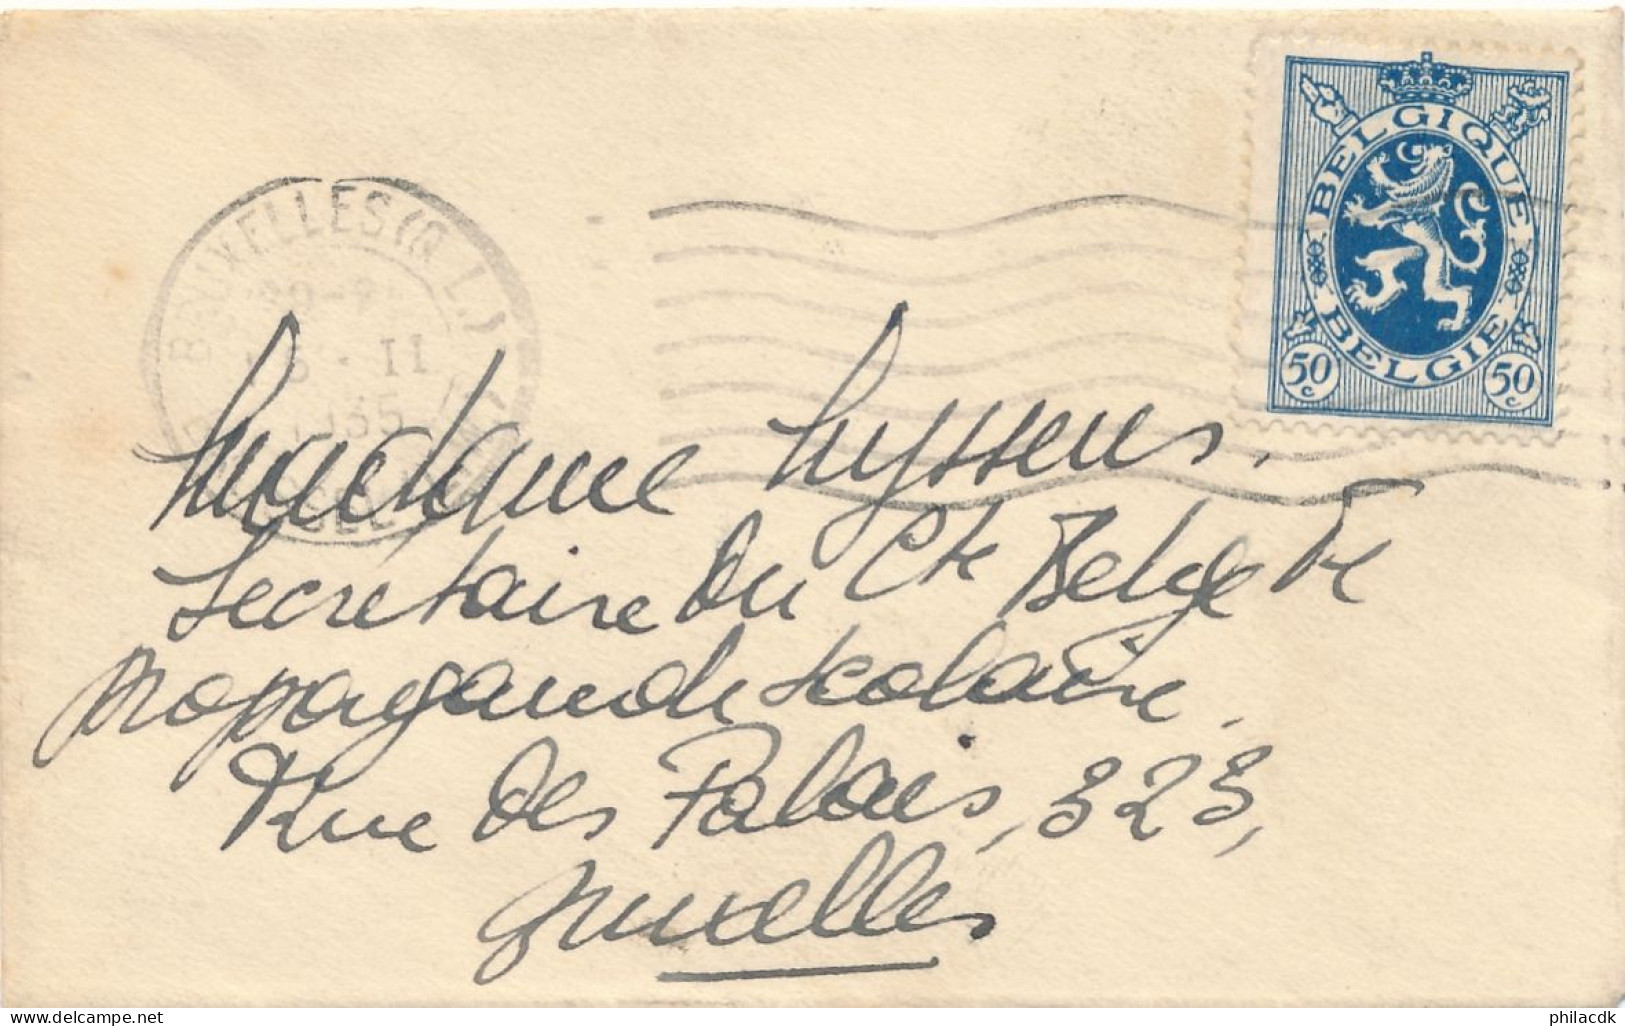 BELGIQUE
BELGIE
50 c 50 c
BRUXELLES (Q.L.)
II
1935
Madame Lyssens.
Secrétaire du Cte Belge de
propagande scolaire.
Rue des Palais, 323,
Bruxelles
www.delcampe.net
philacdk